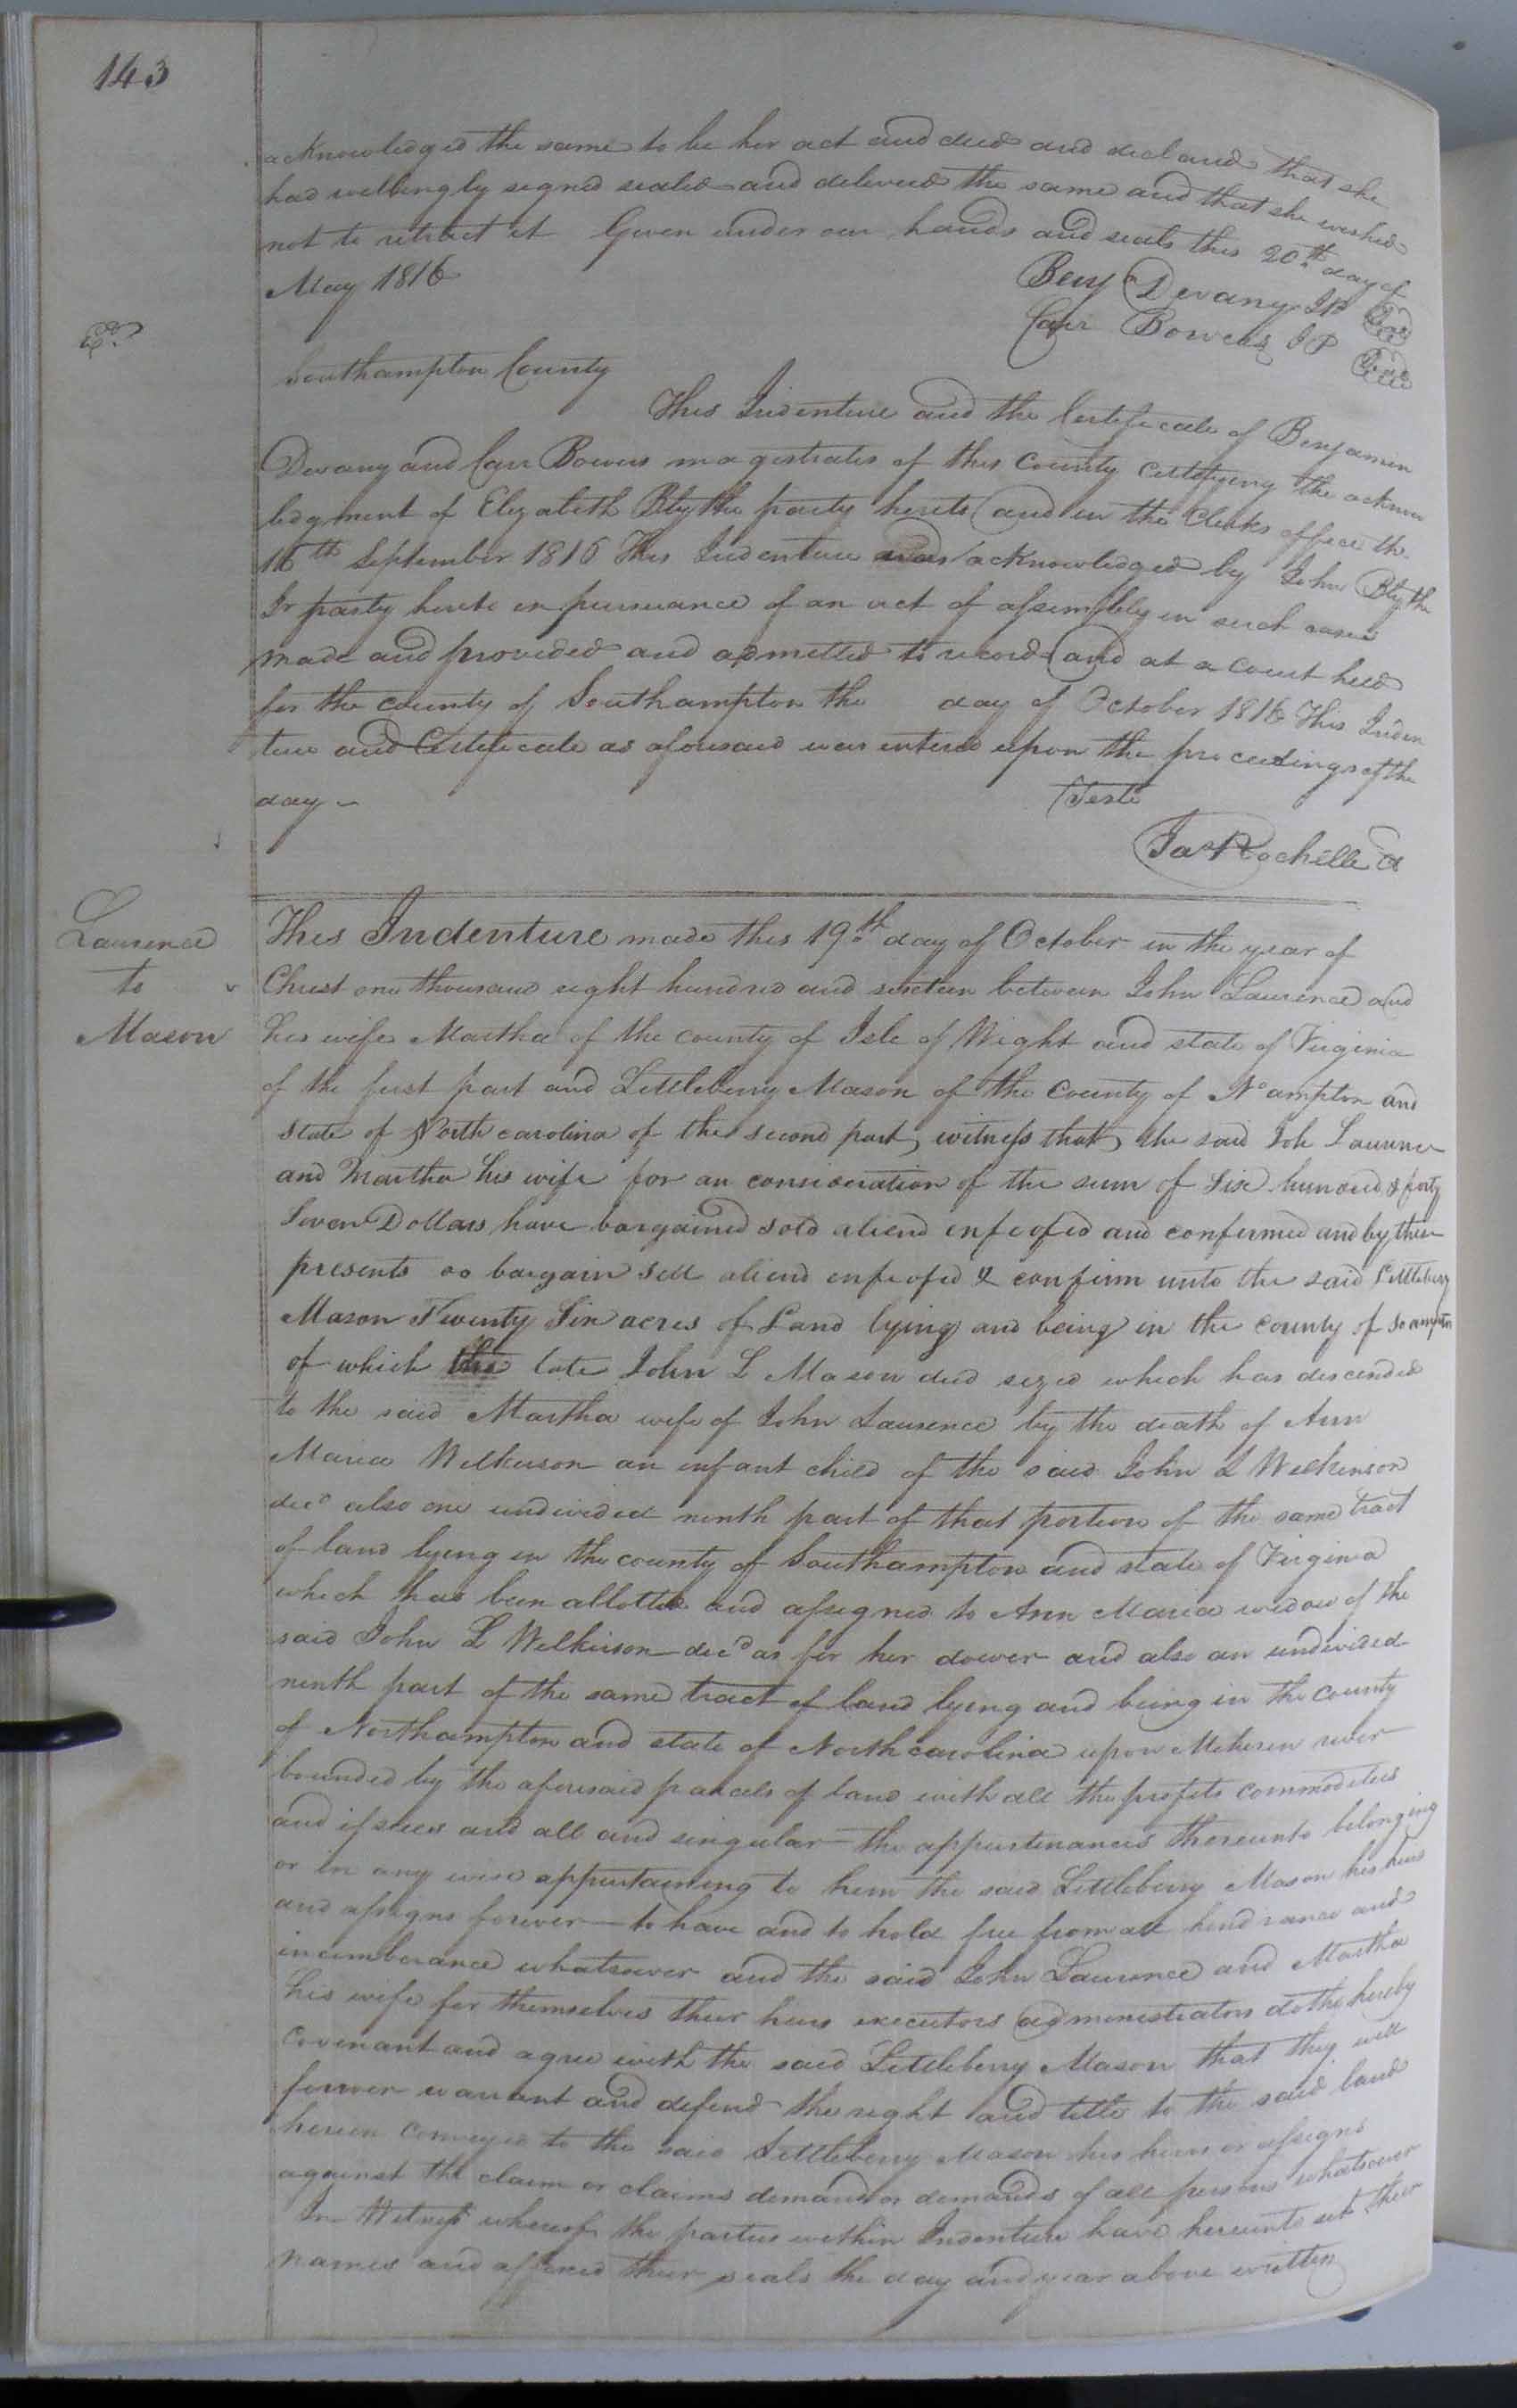 143
acknowledged the same to be her act and deed and declared that she
had willingly signed sealed and delivered the same and that she wished
not to retract it Given under our hands and seals this 20th day of
May 1816
Benj Devany JP Seal
Carr Bowers JP Seal
Exd
Southampton County
This Indenture and the Certificate of Benjamin
Devany and Carr Bowers magistrates of this County certifying the acknow
ledgment of Elizabeth Blythe party hereto and in the Clerks office the
16th September 1816 This Indenture was acknowledged by John Blythe
Jr party hereto in pursuance of an act of assembly in such cases
made and provided and admitted to record and at a court held
for the county of Southampton the day of October 1816 This Inden
ture and Certificate as aforesaid was entered upon the proceedings of the
day
Teste
Jas Rochelle Cl
Laurence
to
Mason
This Indenture made this 19th day of October in the year of
Christ one thousand eight hundred and sixteen between John Laurence and
his wife Martha of the county of Isle of Wight and state of Virginia
of the first part and Littleberry Mason of the County of No ampton and
State of North carolina of the second part, witness that, the said Joh Laurence
and Martha his wife for an consideration of the sum of Six hundred & forty
Seven Dollars have bargained sold aliend enfeofed and confirmed and by these
presents do bargain sell aliend enfeofed & confirm unto the said Littleberry
Mason Twenty Six acres of Land lying and being in the county of So ampton
of which the late John L Mason died sezed which has descended
to the said Martha wife of John Laurence by the death of Ann
Maria Wilkinson an infant child of the said John L Wilkinson
decd also one undivided ninth part of that portion of the same tract
of land lying in the county of Southampton and state of Virginia
which has been allotted and assigned to Ann Maria widow of the
said John L Wilkinson decd as for her dower and also an undivided
ninth part of the same tract of land lying and being in the county
of Northampton and state of North carolina upon Meherin river
bounded by the aforesaid parcels of land with all the profits commodities
and issues and all and singular the appurtenances thereunto belonging
or in any wise appurtaining to him the said Littleberry Mason his heirs
and assigns forever to have and to hold free from all hindrance and
incumberance whatsoever and the said John Laurence and Martha
his wife for themselves their heirs executors administrators doth hereby
covenant and agree with the said Littleberry Mason that they will
forever warrant and defend the right and title to the said land
herein conveyed to the said Littleberry Mason his heirs or assigns
against the claim or claims demand or demands of all persons whatsoever
In Witness whereof the parties within Indenture have hereunto set their
names and affixed their seals the day and year above written